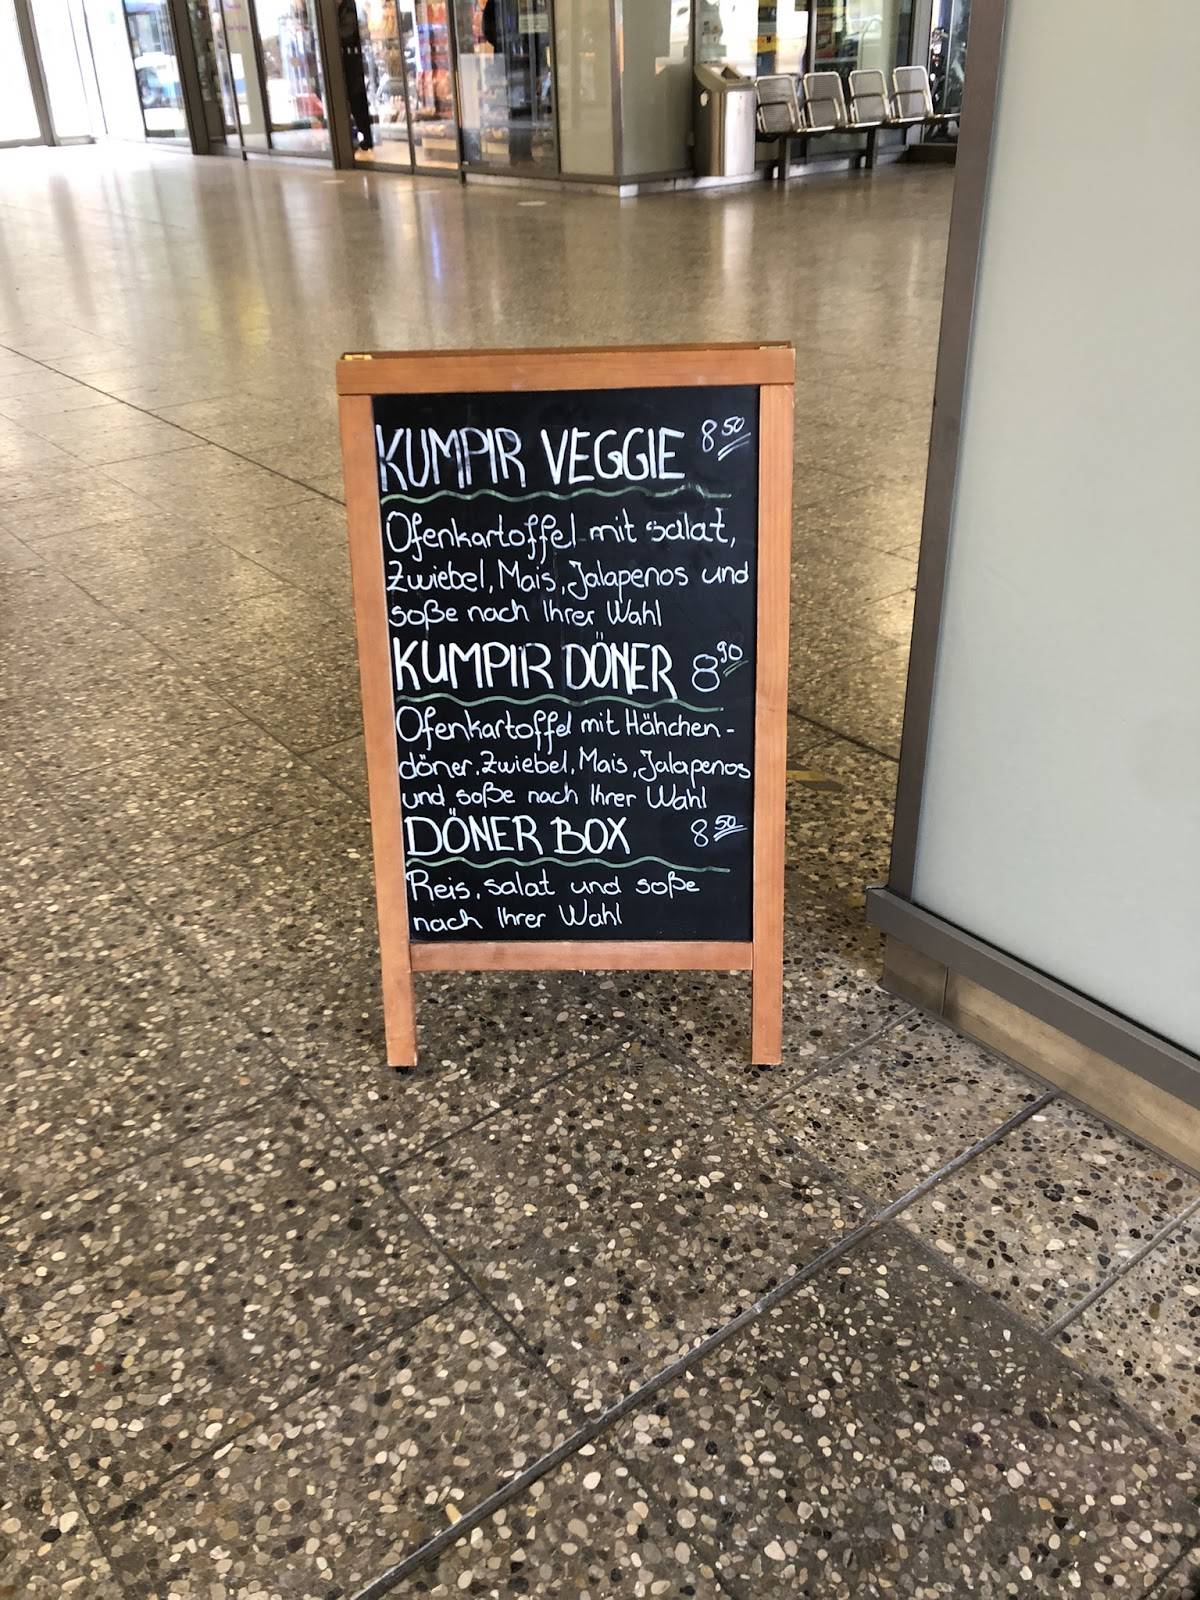 KUMPIR VEGGIE 8 50
Ofenkartoffel mit salat,
Zwiebel, Mais, Jalapenos und
soße nach Ihrer Wahl
KUMPIR DÖNER 8 90
Ofenkartoffel mit Hähchen-
döner, Zwiebel, Mais, Jalapenos
und soße nach Ihrer Wahl
DÖNER BOX 8 50
Reis, salat und soße
nach Ihrer Wahl